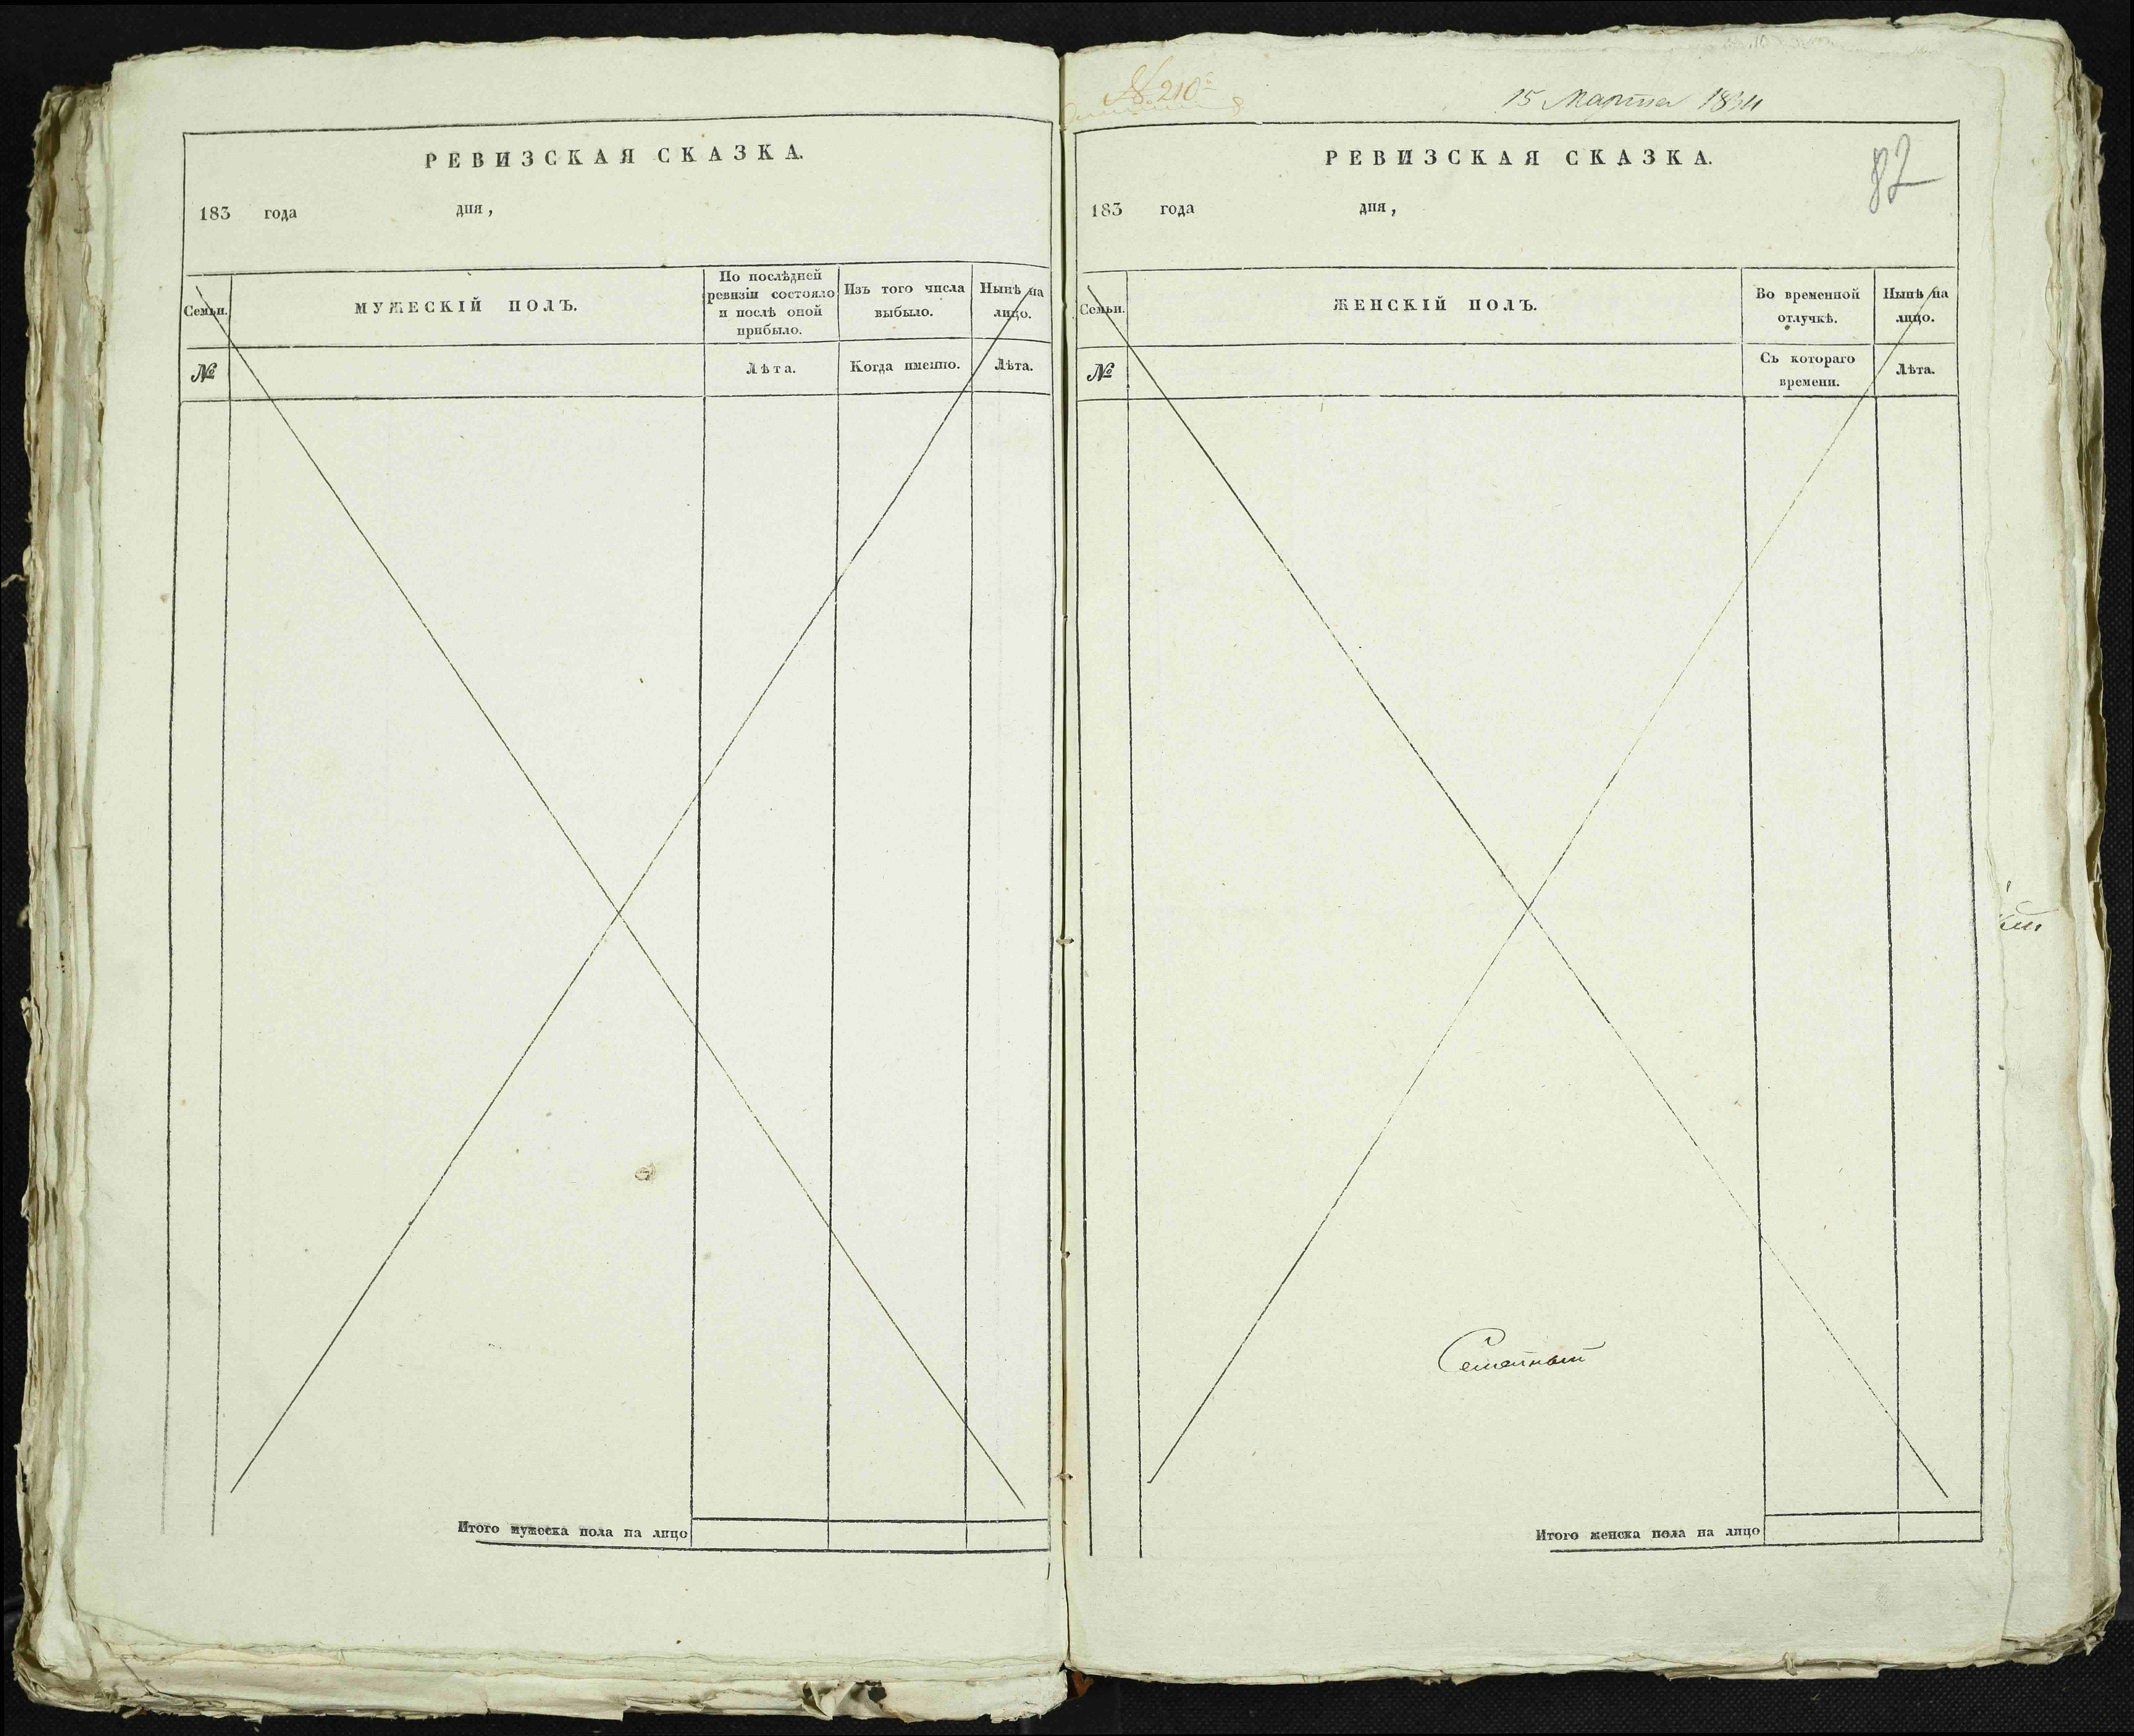 РЕВИЗСКАЯ СКАЗКА.
183 года дня,
Семьи.
МУЖЕСКІЙ ПОЛЪ.
По послѣдней
ревизіи состояло
и послѣ оной
прибыло.
Изъ того числа
выбыло.
Нынѣ на
лицо.
№
Лѣта.
Когда именно.
Лѣта.
Итого мужеска пола на лицо
№ 210
15 Марта 1834
82
РЕВИЗСКАЯ СКАЗКА.
183 года дня,
Семьи.
ЖЕНСКІЙ ПОЛЪ.
Во временной
отлучкѣ.
Нынѣ на
лицо.
№
Съ котораго
времени.
Лѣта.
Итого женска пола на лицо